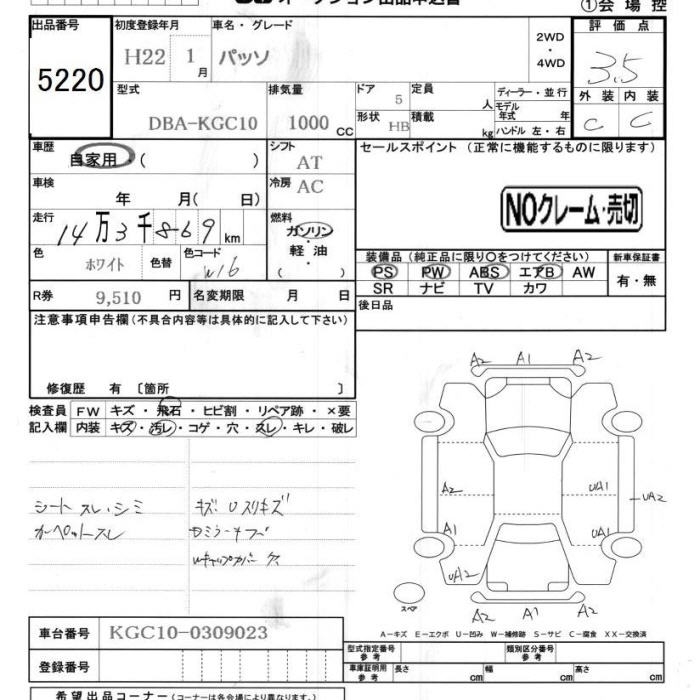 ①会場控
出品番号
5220
初度登録年月
H22 1月
車名・グレード
パッソ
2WD
・
4WD
評価点
3.5
外装 内装
C C
型式
DBA-KGC10
排気量
1000 CC
ドア
5
定員
人
形状
HB
積載
kg
ディーラー・並行
モデル年式 年
ハンドル 左・右
車歴
自家用・( )
シフト
AT
車検
年 月( 日)
冷房
AC
走行
14万3千869km
燃料
ガソリン
・
軽・油
( )
色
ホワイト
色替
色コード
W16
R券 9,510 円
名変期限 月 日
セールスポイント (正常に機能するものに限ります)
NOクレーム・売切
装備品 (純正品に限り○をつけてください)
新車保証書
PS PW ABS エアB AW
SR ナビ TV カワ
有・無
後日品
注意事項申告欄(不具合内容等は具体的に記入して下さい)
修復歴 有 〔箇所 〕
検査員
記入欄
FW キズ・飛石・ヒビ割・リペア跡・×要
内装 キズ・汚レ・コゲ・穴・スレ・キレ・破レ
シートスレ・シミ
カーペットスレ
キズ U スリキズ
A2 A1 A2
A2
UA1
UA2
A1
UA1
UA2
A2 A1 A2
スペア
A－キズ E－エクボ U－凹み W－補修跡 S－サビ C－腐食 XX－交換済
車台番号 KGC10-0309023
登録番号
型式指定番号
参考
類別区分番号
参考
車庫証明用
参考
長さ cm
幅 cm
高さ cm
希望出品コーナー(コーナーは各会場により異なります。)